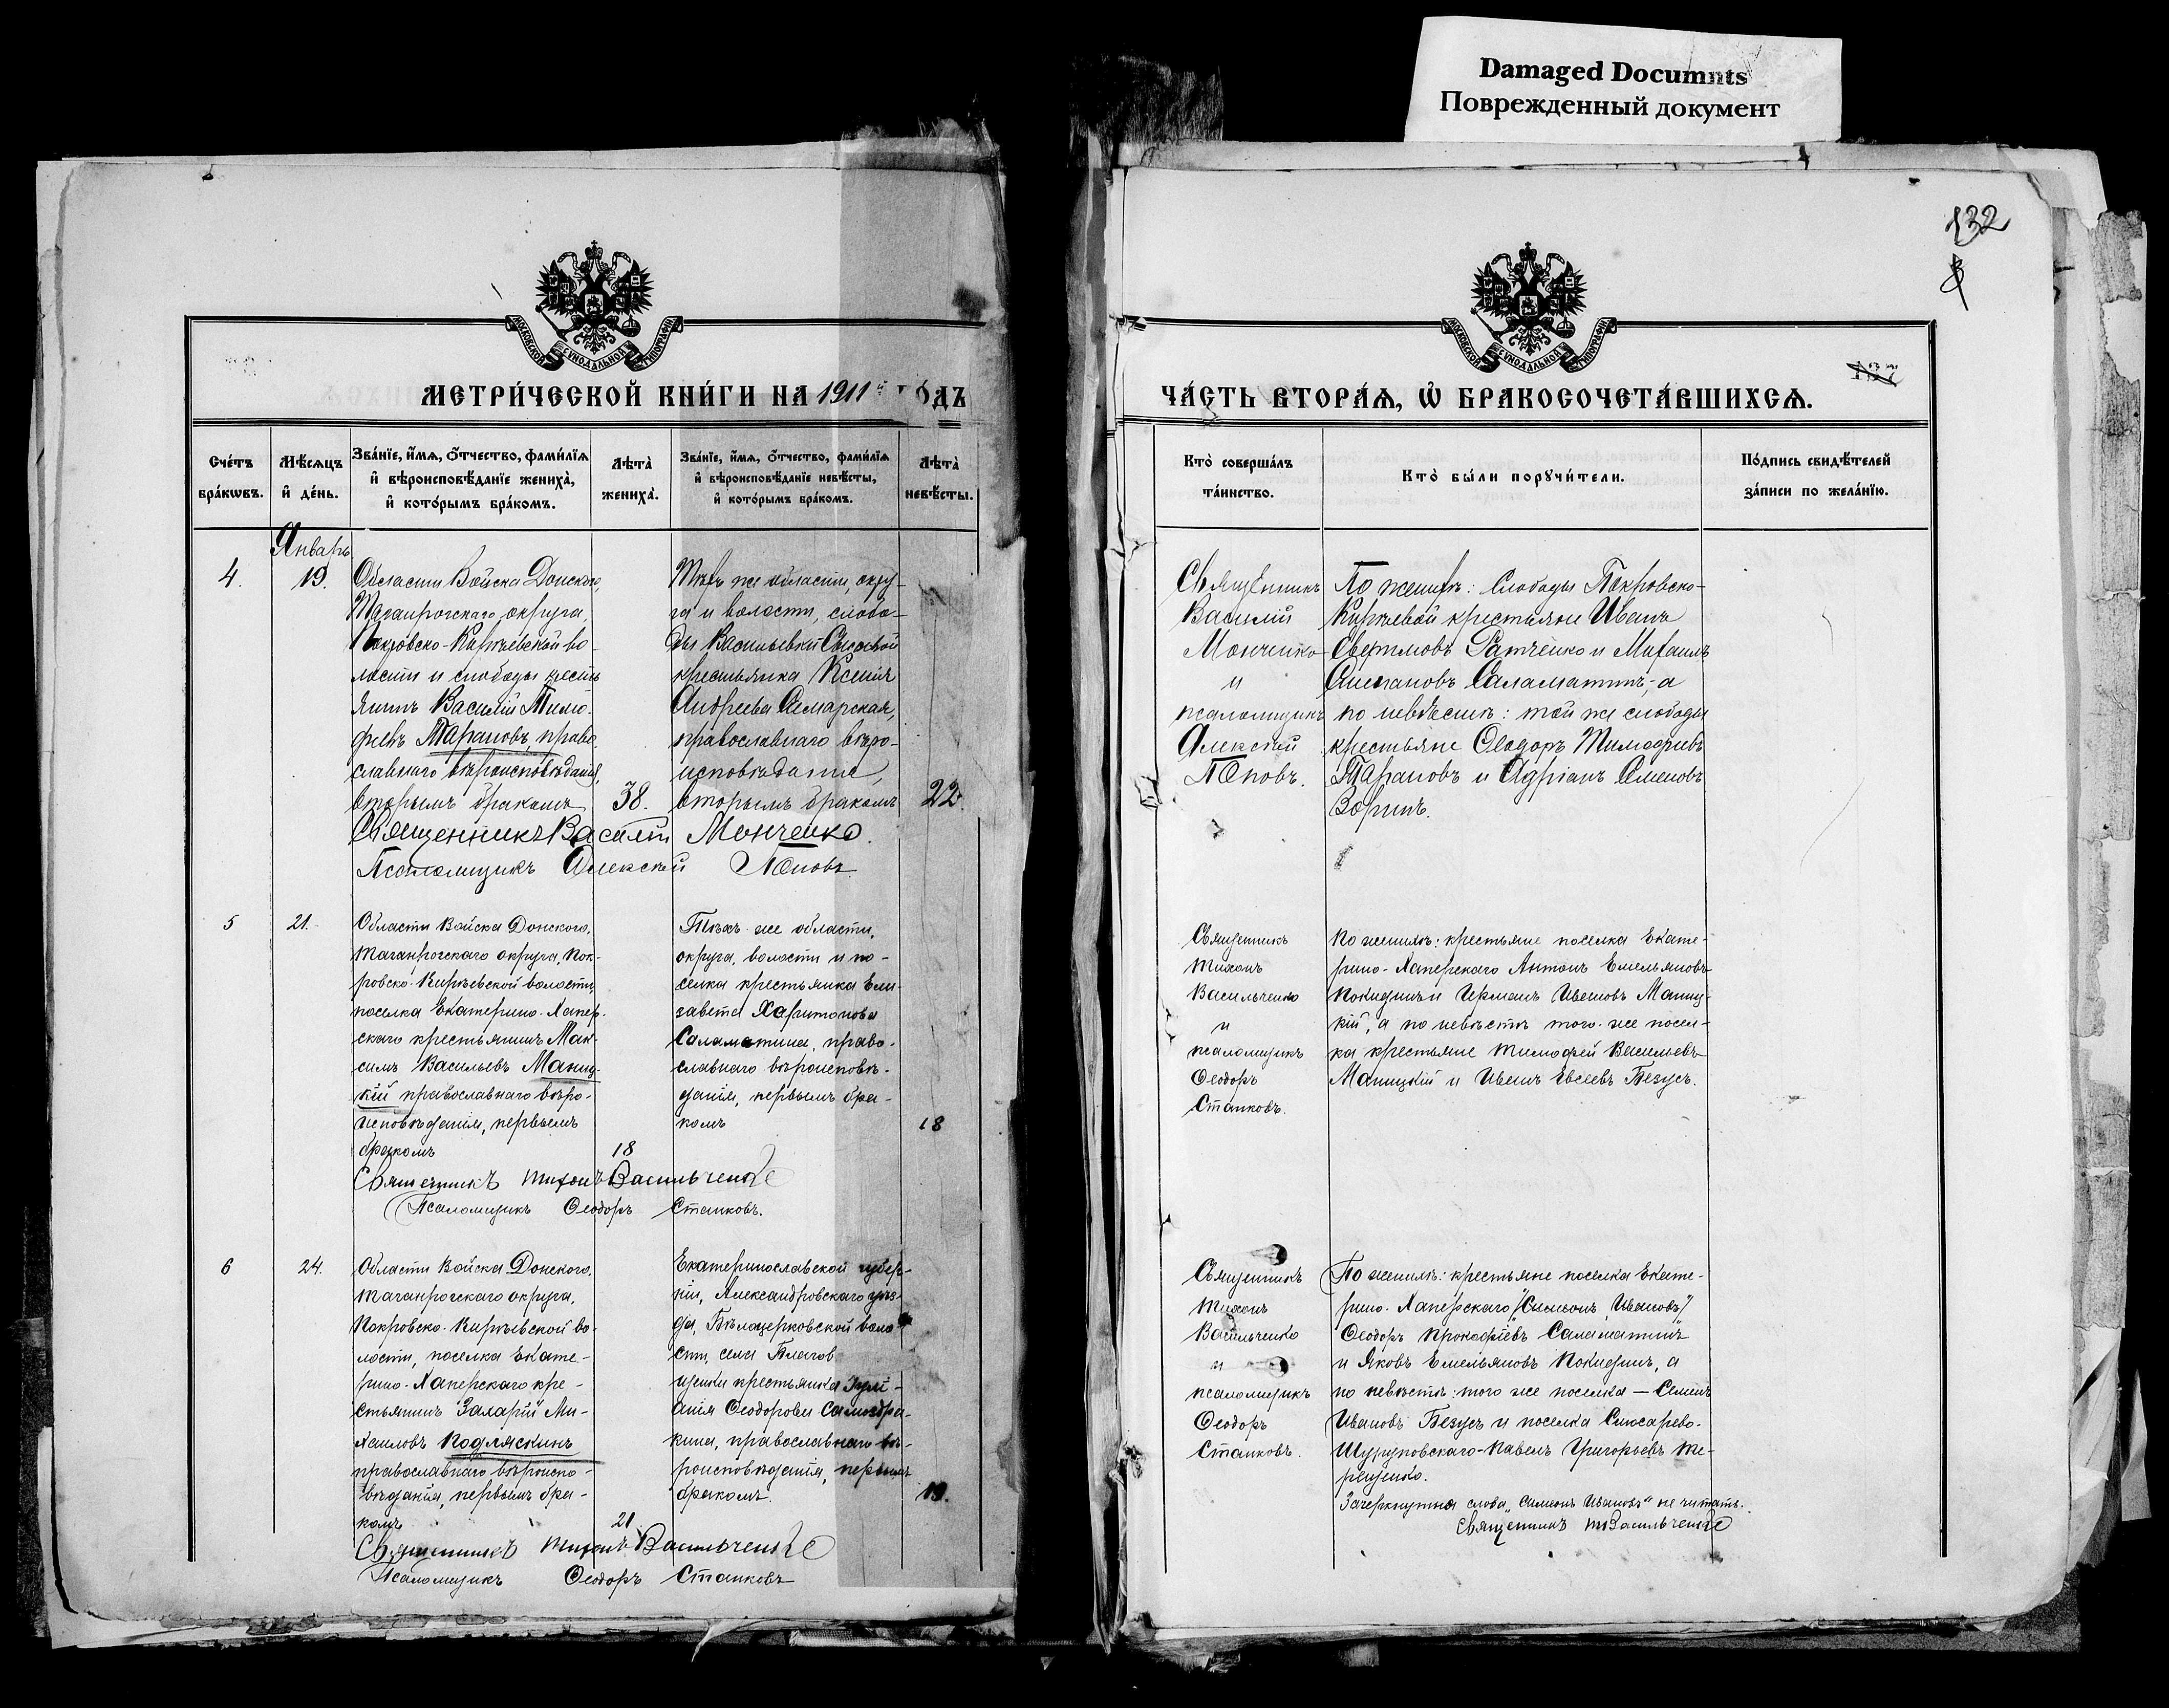 Damaged Documnts
Поврежденный документ
132
МОСКОВСКОЙ СѴНОДАЛЬНОЙ ТИПОГРАФІИ
МЕТРИ́ЧЕСКОЙ КНИ́ГИ НА 1911й ГО́ДЪ
Сче́тъ бра́кѡвъ.
Мѣ́сяцъ и҆ де́нь.
Зва́нїе, и҆́мя, ѻ҆́тчество, фами́лїя
и҆ вѣроисповѣ́данїе жениха̀,
и҆ кото́рымъ бра́комъ.
Лѣ́та̀ жениха̀.
Зва́нїе, и҆́мя, ѻ҆́тчество, фами́лїя
и҆ вѣроисповѣ́данїе невѣ́сты,
и҆ кото́рымъ бра́комъ.
Лѣ́та̀ невѣ́сты.
Январь
4.
19.
Области Войска Донского,
Таганрогскаго округа,
Покровско-Кирѣевской во-
лости и слободы кресть
янинъ Василій Тимо-
феевъ Тарановъ, право
славнаго вѣроисповѣданія,
вторымъ бракомъ
38.
Тѣхъ же области, окру-
га и волости, слобо-
ды Васильевки
крестьянка Ксенія
Андреева Самарская,
православнаго вѣро-
исповѣданія,
вторымъ бракомъ
22.
Священникъ Василій Монченко.
Псаломщикъ Алексѣй Поповъ
5
21.
Области Войска Донского,
Таганрогскаго округа, Пок-
ровско-Кирѣевской волости,
поселка Екатерино-Хапер-
скаго крестьянинъ Мак-
симъ Васильевъ Маниц-
кій православнаго вѣро-
исповѣданія, первымъ
бракомъ
18
Тѣхъ же области,
округа, волости и по-
селка крестьянка Ели-
завета Харитонова
Саламатина, право-
славнаго вѣроисповѣ-
данія, первымъ бра-
комъ
18
Священникъ Тихонъ Васильченко
Псаломщикъ Ѳеодоръ Станковъ.
6
24.
Области Войска Донского,
Таганрогскаго округа,
Покровско-Кирѣевской во-
лости, поселка Екате-
рино-Хаперскаго кре-
стьянинъ Захарій Ми-
хаиловъ Подляскинъ
православнаго вѣроиспо-
вѣданія, первымъ бра-
комъ
21
Екатеринославской губер-
ніи, Александровскаго уѣз-
да, Бѣлоцерковской воло
сти, села Благов
щенки крестьянка Іулі-
анія Ѳеодорова
кина, православнаго вѣ-
роисповѣданія, первымъ
бракомъ.
19.
Священникъ Тихонъ Васильченко
Псаломщикъ Ѳеодоръ Станковъ
МОСКОВСКОЙ СѴНОДАЛЬНОЙ ТИПОГРАФІИ
137
ЧА́СТЬ ВТОРА́Я, Ѡ҆ БРАКОСОЧЕТА́ВШИХСЯ.
Кто̀ соверша́лъ та́инство.
Кто̀ бы́ли порꙋчи́тели.
По́дпись свидѣ́телей за́писи по жела́нїю.
Священникъ
Василій
Монченко
и
псаломщикъ
Алексѣй
Поповъ.
По женихѣ: Слободы Покровско-
Кирѣевой крестьяне Иванъ
Евфимовъ Ратченко и Михаилъ
Степановъ Саламатинъ, а
по невѣстѣ: той же слободы
крестьяне Ѳеодоръ Тимофеевъ
Тарановъ и Адріанъ Семеновъ
Зоринъ.
Священникъ
Тихонъ
Васильченко
и
псаломщикъ
Ѳеодоръ
Станковъ.
По женихѣ: крестьяне поселка Екате-
рино-Хаперскаго Антонъ Емельяновъ
Покидинъ и Германъ Ивановъ Маниц-
кій, а по невѣстѣ того же посел-
ка крестьяне Тимофей Васильевъ
Маницкій и Иванъ Евсеевъ Безусъ.
Священникъ
Тихонъ
Васильченко
и
псаломщикъ
Ѳеодоръ
Станковъ.
По женихѣ: крестьяне поселка Екате-
рино-Хаперскаго /Симеонъ Ивановъ/
Ѳеодоръ Прокофіевъ Саламатинъ
и Яковъ Емельяновъ Покидинъ, а
по невѣстѣ: того же поселка — Семенъ
Ивановъ Безусъ и поселка Слюсарево-
Шурупповскаго-Павелъ Григорьевъ Те-
рещенко.
Зачеркнутыя слова „Симеонъ Ивановъ“ не читать.
Священникъ Т. Васильченко